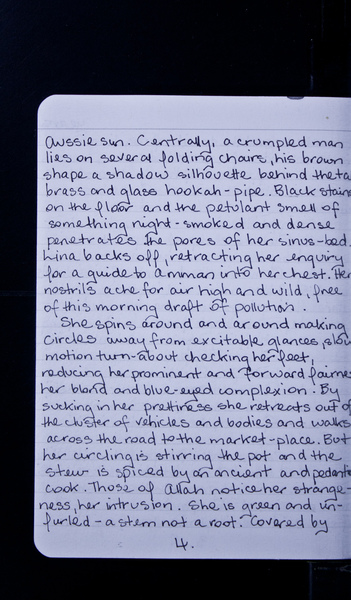 Aussie sun. Centrally, a crumpled man
lies on several folding chairs, his brown
shape a shadow silhouette behind the ta
brass and glass hookah-pipe. Black stain
on the floor and the petulant smell of
something night-smoked and dense
penetrates the pores of her sinus-bed.
Lina backs off, retracting her enquiry
for a guide to Amman into her chest. Her
nostrils ache for air high and wild, free
of this morning draft of pollution.
She spins around and around making
circles away from excitable glances, slow
motion turn-about checking her feet,
reducing her prominent and forward fairne
her blond and blue-eyed complexion. By
sucking in her prettiness she retreats out of
the cluster of vehicles and bodies and walks
across the road to the market-place. But
her circling is stirring the pot and the
stew is spiced by an ancient and pedant
cook. Those of Allah notice her strange-
ness, her intrusion. She is green and un-
furled - a stem not a root. Covered by
4.